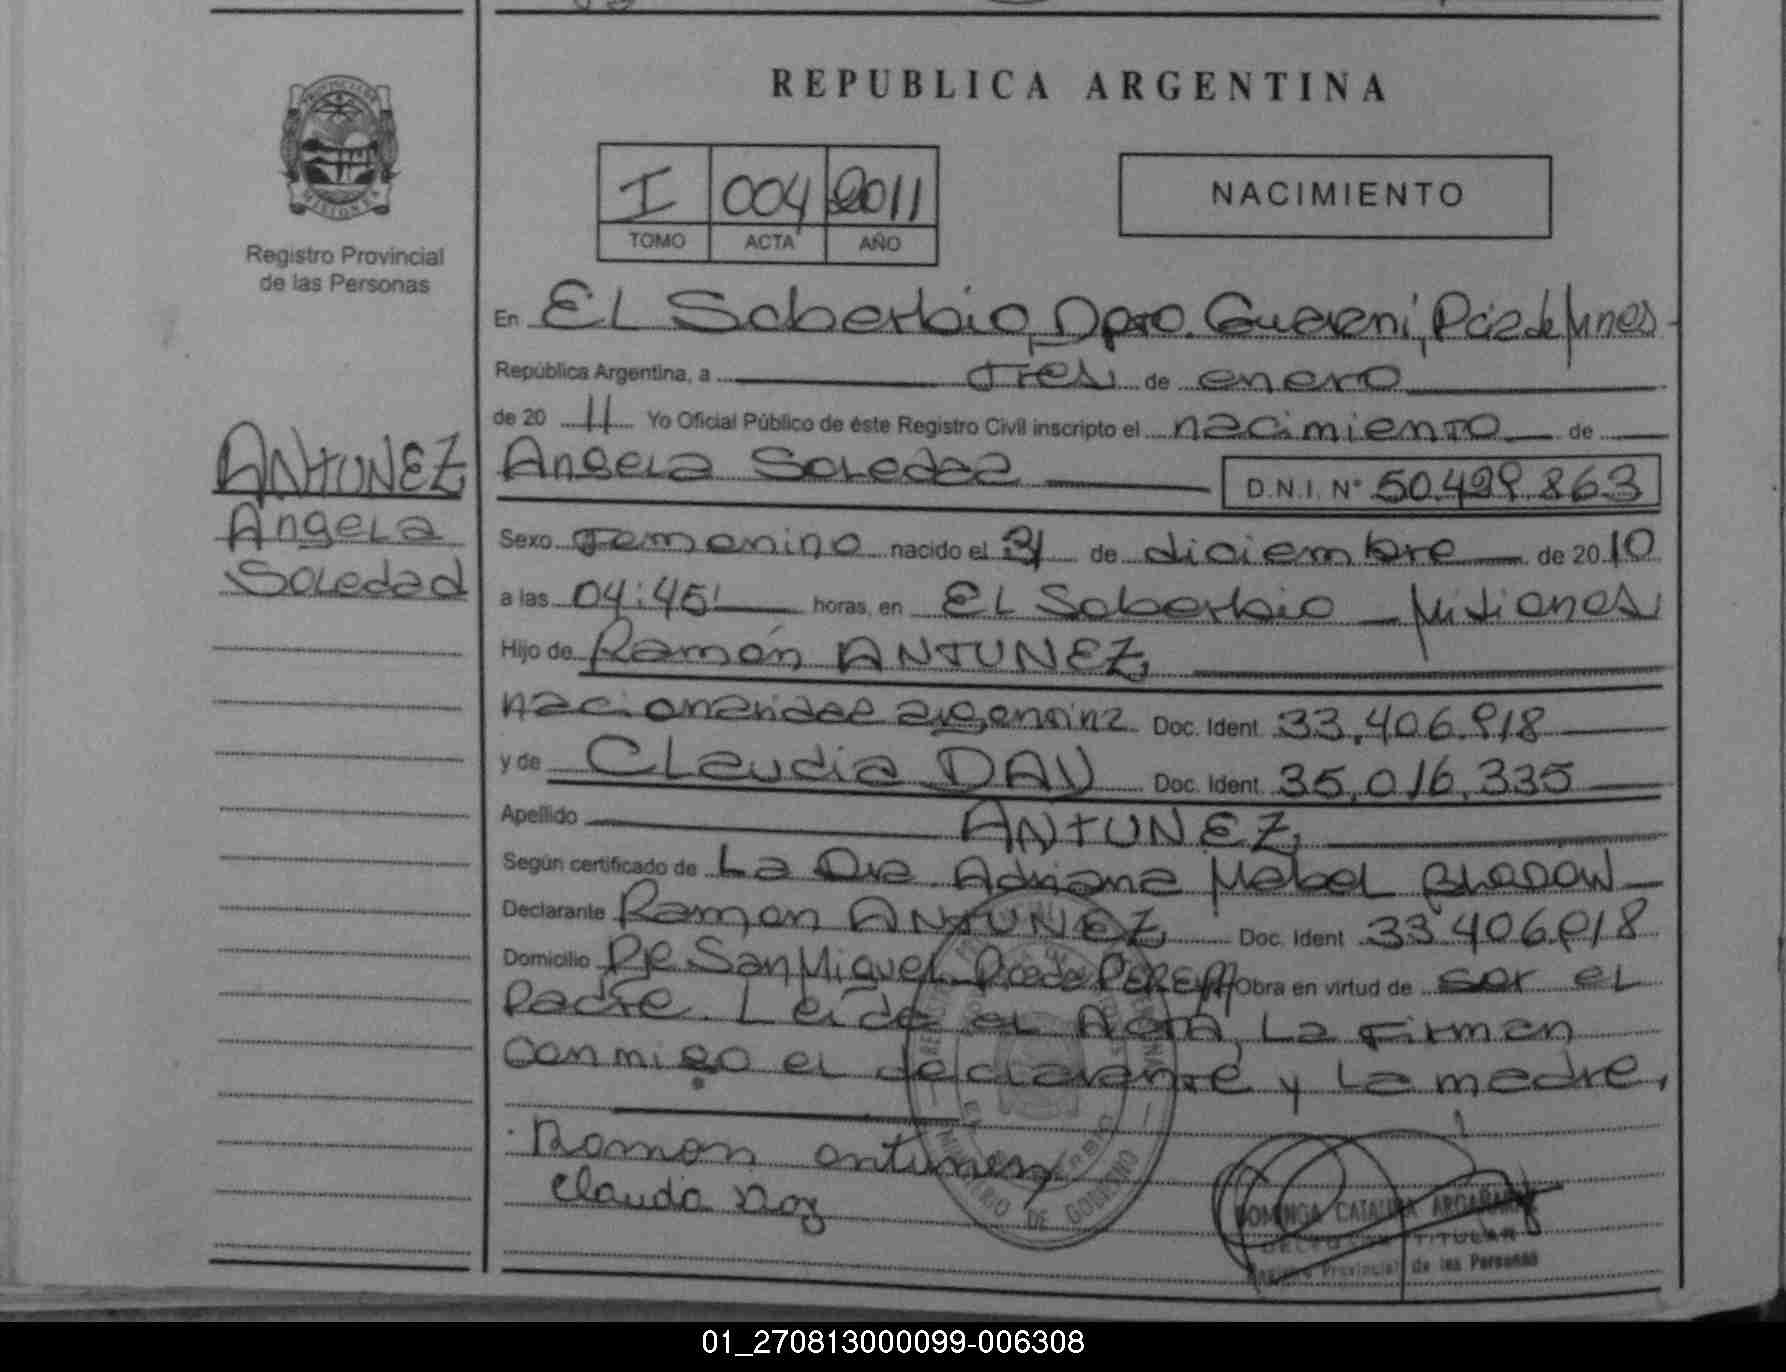 REPUBLICA ARGENTINA
PROVINCIA DE MISIONES
Registro Provincial
de las Personas
I 004 2011
TOMO ACTA AÑO
NACIMIENTO
ANTUNEZ
Angela
Soledad
En EL Soberbio, Dpto. Guarani, Pcia de Mnes
República Argentina, a tres de enero
de 20 11 Yo Oficial Público de éste Registro Civil inscripto el nacimiento de
Angela Soledad D.N.I. Nº 50.499.863
Sexo Femenino nacido el 31 de diciembre de 2010
a las 04:45' horas, en EL Soberbio Misiones
Hijo de Ramón ANTUNEZ,
nacionalidad argentina Doc. Ident. 33.406.918
y de Claudia DAV Doc. Ident. 35.016.335
Apellido ANTUNEZ,
Según certificado de La Dra Adriana Mabel
Declarante Ramon ANTUNEZ, Doc. Ident 33406918
Domicilio San Miguel Obra en virtud de ser el
Padre. Leida el Acta, La Firman
conmigo el declarante y La madre,
Ramon antunez
Claudia
MINISTERIO DE GOBIERNO
DOMINGA CATALINA
TITULAR
Registro Provincial de las Personas
01_270813000099-006308